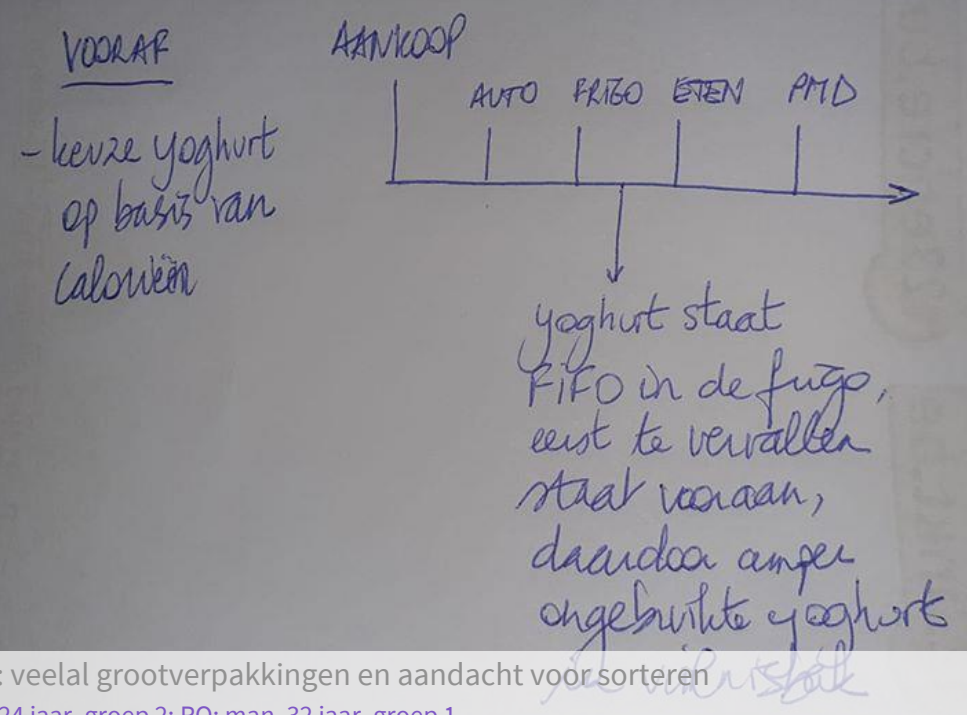 VOORAF
- keuze yoghurt
op basis van
calorieën
AANKOOP
AUTO FRIGO ETEN PMD
yoghurt staat
FiFO in de frigo,
eerst te vervallen
staat vooraan,
daardoor amper
ongebruikte yoghurts
: veelal grootverpakkingen en aandacht voor sorteren
24 jaar, groep 2; RO: man, 32 jaar, groep 1